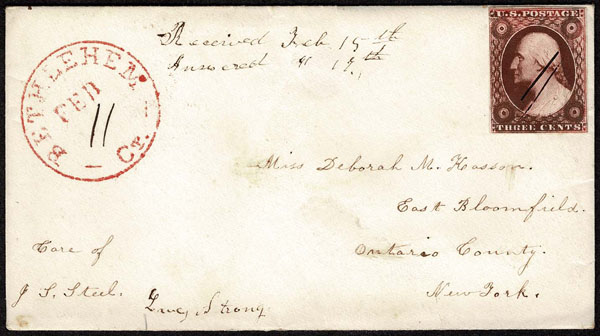 BETHLEHEM
FEB
11
CT.
Received Feb. 15th
Answered " 17th
U.S. POSTAGE
THREE CENTS
Miss Deborah M. Hasson.
East Bloomfield.
Ontario County.
New York.
Care of
J S. Steel.
Strong